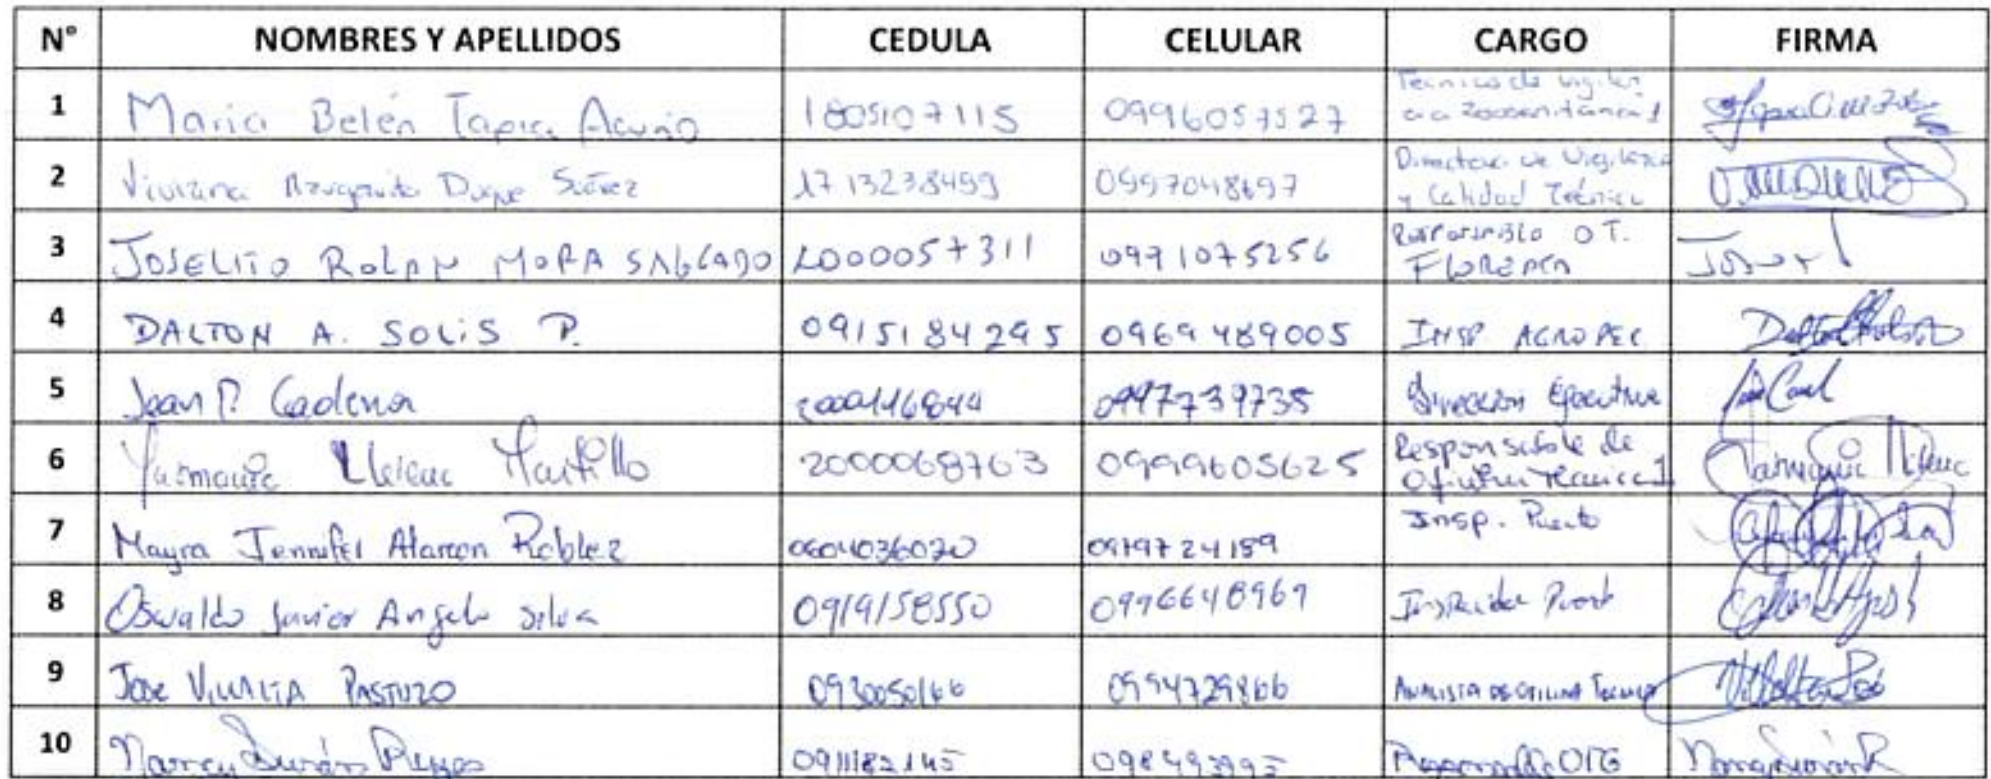 N° NOMBRES Y APELLIDOS CEDULA CELULAR CARGO FIRMA
1 Maria Belén Tapia Acurio 1805107115 0996057527 Técnico de vigilan
cia Zoosanitaria 1
2 Viviana Margarita Duque Suárez 1713238499 0997048697 Directora de Vigilancia
y Calidad Técnica
3 JOSELITO ROLAN MORA SALGADO 2000057311 0971075256 Responsable O.T.
FLOREANA
4 DALTON A. SOLIS P. 0915184295 0969489005 INSP. AGROPEC
5 Jean P. Cadena 2000116844 0997739735 Dirección Ejecutiva
6 Llerena Martillo 2000068763 0999605625 Responsable de
Oficina Técnica 1
7 Mayra Jennifer Alarcon Roblez 0604036020 0979724159 Insp. Puerto
8 Oswaldo Javier Angulo Silva 0919158550 0996648969 Puerto
9 JOSE VILLALTA PASTUZO 0930050166 0994729866 ANALISTA DE OFICINA TECNICA
10 Durán Reyes 0911182145